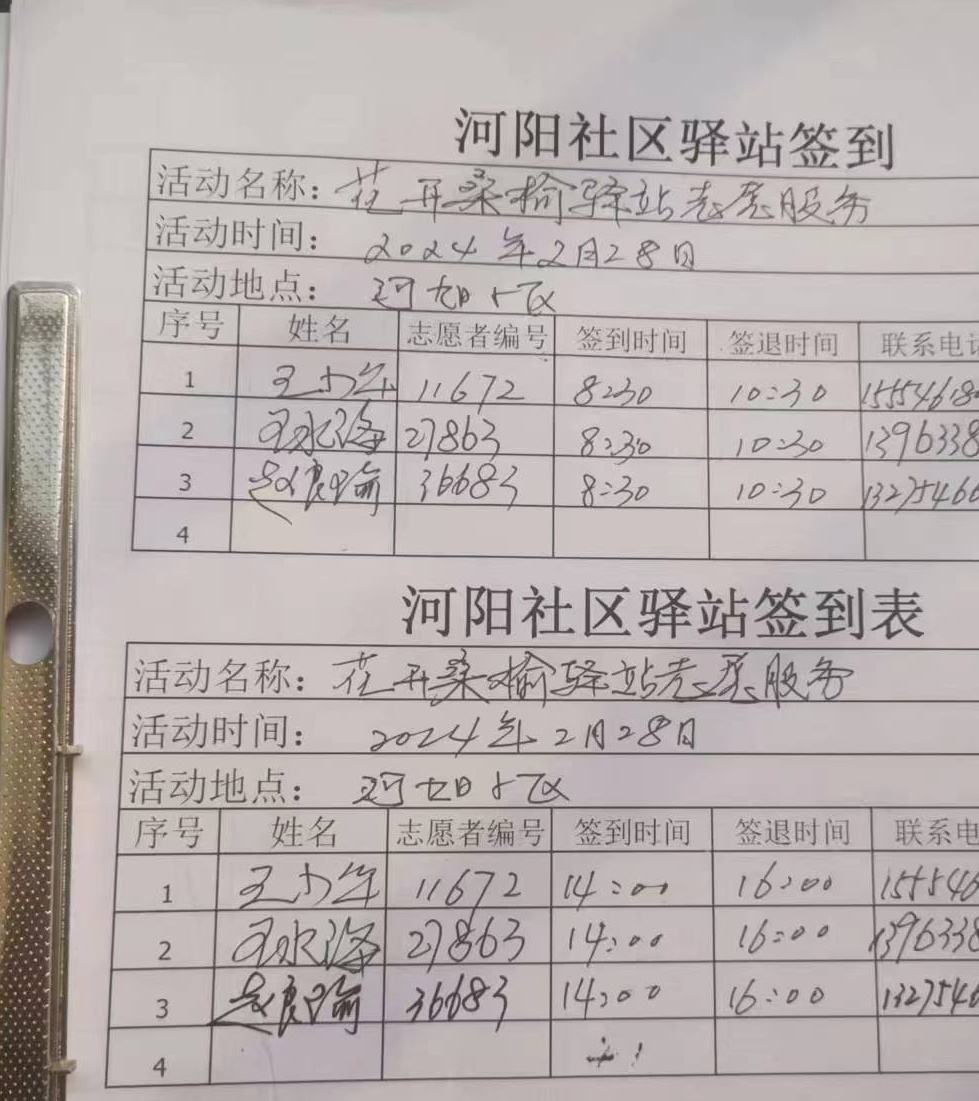 河阳社区驿站签到
活动名称: 花开桑榆驿站志愿服务
活动时间: 2024年2月28日
活动地点: 河阳
序号 姓名 志愿者编号 签到时间 签退时间 联系电话
1 王 11672 8:30 10:30 1555461
2 永海 27863 8:30 10:30 1396338
3 赵良瑜 36683 8:30 10:30 13275466
4
河阳社区驿站签到表
活动名称: 花开桑榆驿站志愿服务
活动时间: 2024年2月28日
活动地点: 河阳
序号 姓名 志愿者编号 签到时间 签退时间 联系电
1 王 11672 14:00 16:00 155546
2 永海 27863 14:00 16:00 1396338
3 赵良瑜 36683 14:00 16:00 1327546
4